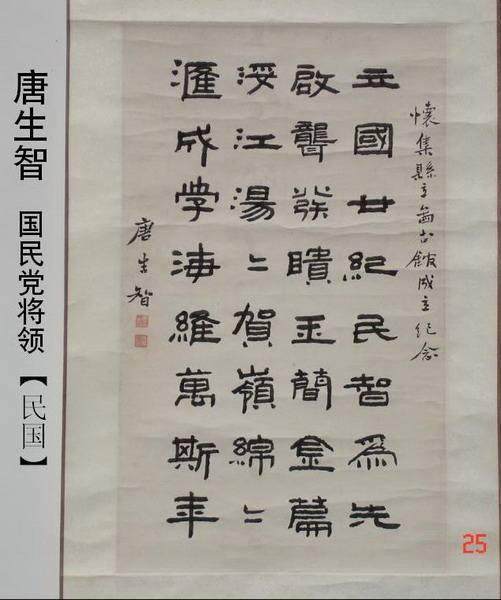 唐生智 国民党将领【民国】
懷集縣立圖书館成立纪念
立國廿紀民智爲先
啟聾發聵玉簡金篇
綏江湯〻賀嶺綿〻
滙成学海維萬斯年
唐生智
25